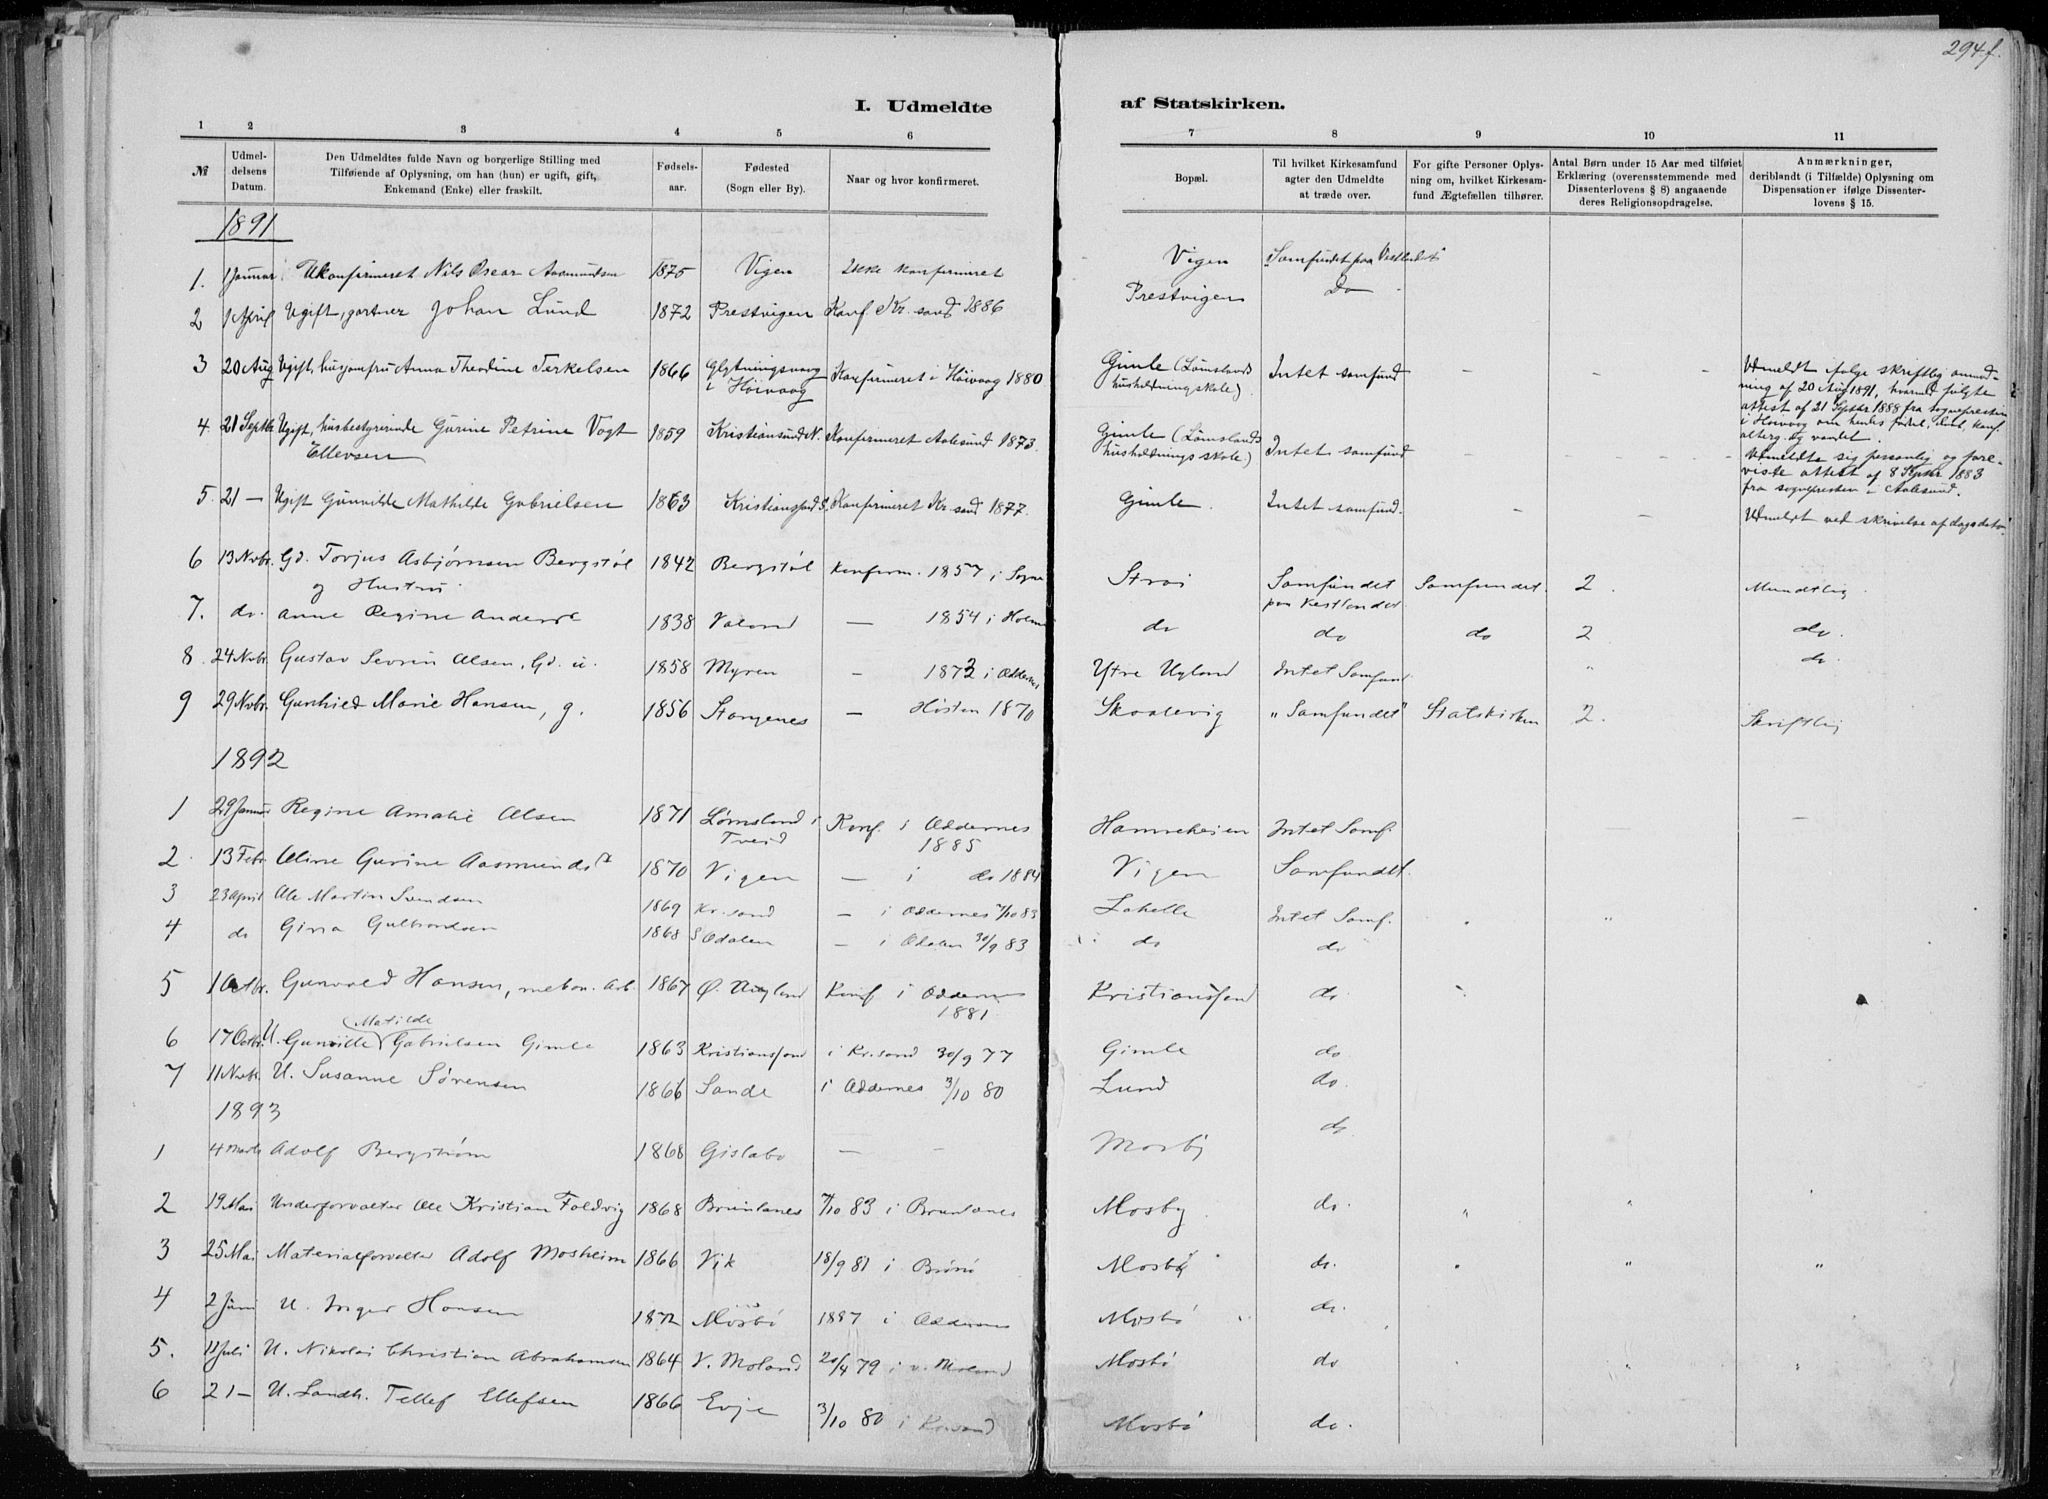 294f.
I. Udmeldte af Statskirken.
1 2 3 4 5 6 7 8 9 10 11
№
Udmel-
delsens
Datum.
Den Udmeldtes fulde Navn og borgerlige Stilling med
Tilføiende af Oplysning, om han (hun) er ugift, gift,
Enkemand (Enke) eller fraskilt.
Fødsels-
aar.
Fødested
(Sogn eller By).
Naar og hvor konfirmeret.
Bopæl.
Til hvilket Kirkesamfund
agter den Udmeldte
at træde over.
For gifte Personer Oplys-
ning om, hvilket Kirkesam-
fund Ægtefællen tilhører.
Antal Børn under 15 Aar med tilføiet
Erklæring (overensstemmende med
Dissenterlovens § 8) angaaende
deres Religionsopdragelse.
Anmærkninger,
deriblandt (i Tilfælde) Oplysning om
Dispensationer ifølge Dissenter-
lovens § 15.
1891
1. 1 Januar Ukonfirmeret Nils Oscar Aasmundsen 1875 Vigen Ikke konfirmeret Vigen Samfundet paa Vestlandet
2 1 April Ugift, gartner Johan Lund 1872 Prestvigen Konf Kr.sand 1886 Prestvigen Do -
3 20 Aug Ugift, husjomfru Anna Theodine Terkelsen 1866 i Höivaag Konfirmeret i Höivaag 1880 Gimle (Lömslands husholdningskole) Intet samfund - - Udmeldt ifølge skriftlig anmod-
ning af 20 Aug 1891, hvormed fulgte
attest af 21 Septbr 1888 fra sognepresten
i Höivaag om hendes födsel, daab, konf.
4. 21 Septbr Ugift, husbestyrerinde Gurine Petrine Vogt
Ellevsen 1859 Kristiansund N. Konfirmeret Aalesund 1873. Gimle (Lömslands husholdnings skole) Intet samfund - - Udmeldte sig personlig og fore-
viste attest af 8 Septbr 1883
fra sognepresten i Aalesund.
5. 21 - Ugift Gunvilde Mathilde Gabrielsen 1863 Kristianssand S. Konfirmeret Kr.sand 1877. Gimle. Intet samfund. - - Udmeldt ved skrivelse af dagsdato.
6 13 Novbr. Gd. Torjus Asbjörnsen Bergstöl
og Hustru 1842 Bergstöl Konfirm. 1857 i Sogne Strai Samfundet paa Vestlandet Samfundet. 2. Mundtlig
7. do. Anne Regine Andersd. 1838 Valand — 1854 i Holme do do do 2 do.
8. 24 Novbr. Gustav Sevrin Olsen, Gd. u. 1858 Myren - 1873 i Oddernes Ytre Ugland Intet Samfund " do
9 29 Novbr. Gunhild Marie Hansen, g. 1856 Stangenes — Høsten 1870 Skaalevig "Samfundet" Statskirken 2. Skriftlig
1892
1 29 Januar Regine Amalie Olsen 1871 Lømsland i Tveid Konf. i Oddernes 1885 Hamreheien Intet Samf. - -
2. 13 Febr. Oline Gurine Aasmundsd. 1870 Vigen — i do 1884 Vigen Samfundet.
3 23 April Ole Martin Svendsen 1869 Kr.sand — i Oddernes 7/10 83 Lahelle Intet Samf. "
4 do Gina Gulbrandsen 1868 S Odalen — i Odalen 30/9 83 do do
5 1 Octbr. Gunvald Hansen, Arb. 1867 Ø. Ugland Konf i Oddernes 1881. Kristianssand do.
6 17 Octbr. U. Gunville (Matilde) Gabrielsen Gimle 1863 Kristianssand i Kr.sand 30/9 77 Gimle do
7 11 Novbr. U. Susanne Sørensen 1866 Sande i Oddernes 3/10 80 Lund do.
1893
1 4 Marts Adolf Bergstrøm 1868 Gislabo — - Mosby do
2 19 Mai Underforvalter Ole Kristian Foldvig 1868 Brunlanes 7/10 83 i Brunlanes Mosby. do. " "
3 25 Mai Materialforvalter Adolf Mosheim 1866 Vik 18/9 81 i Brönö Mosby do. " " "
4 2 Juni U. Inger Hansen 1872 Mosbö 1887 i Oddernes Mosbö do.
5. 11 Juli U. Nikolai Christian Abrahamsen 1864 V. Moland 20/4 79 i V. Moland Mosbö do " "
6 21 - U. Landh. Tellef Ellefsen 1866 Evje 3/10 80 i Kr.sand Mosbö do.